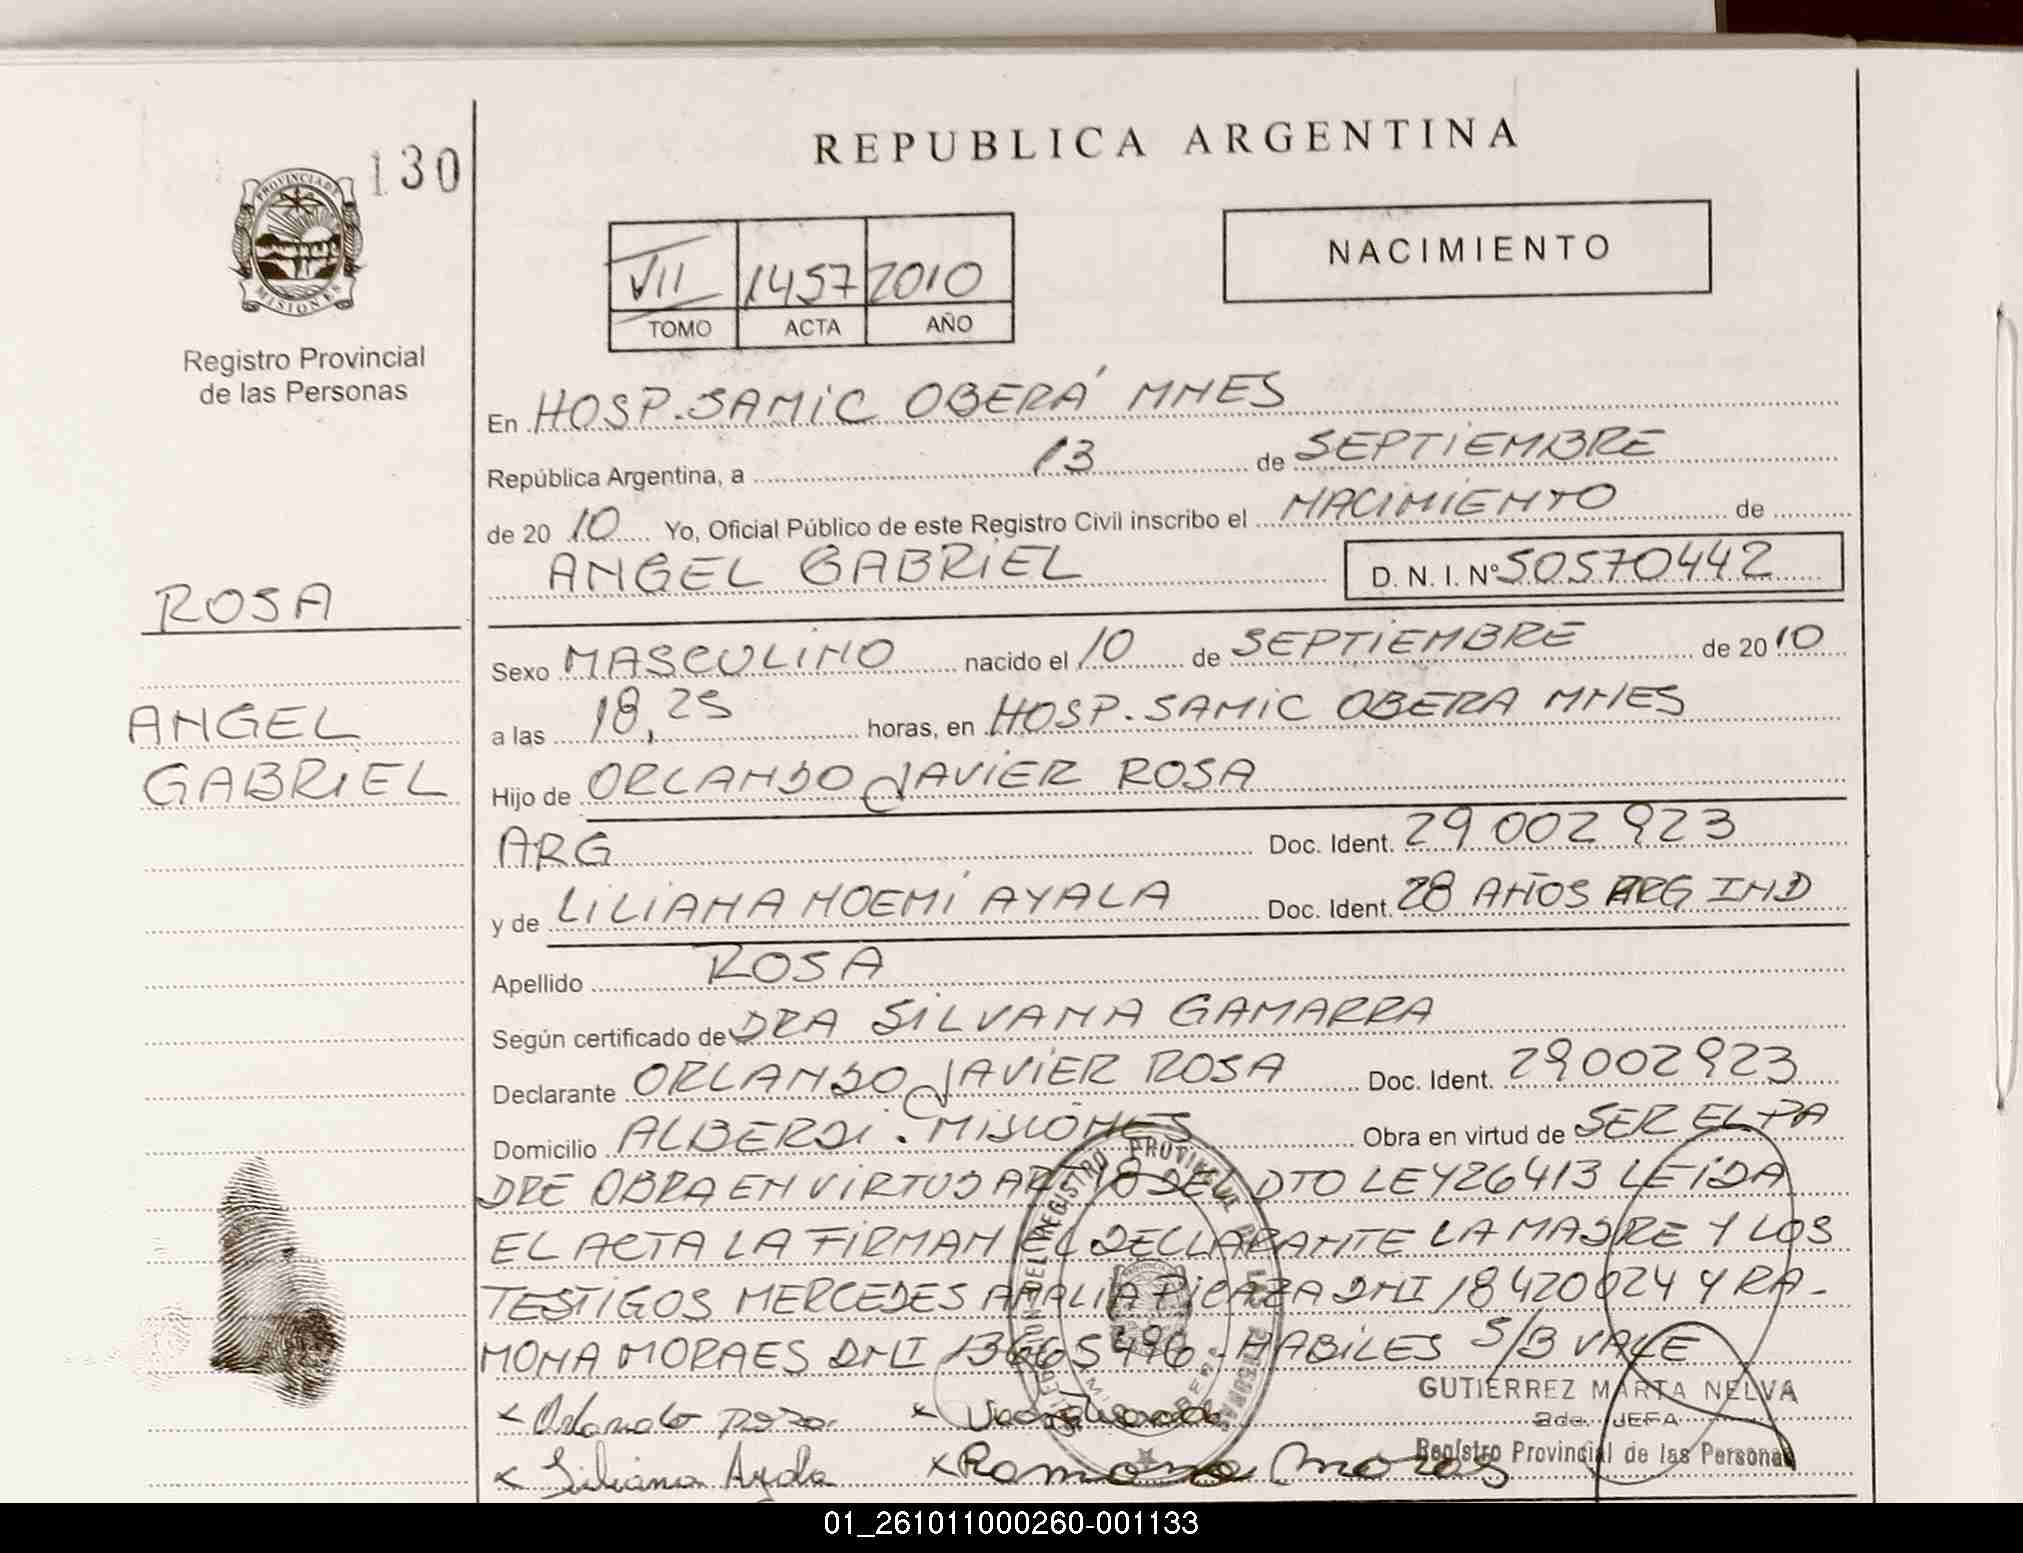 REPUBLICA ARGENTINA
130
PROVINCIA DE
MISIONES
Registro Provincial
de las Personas
VII 1457 2010
TOMO ACTA AÑO
NACIMIENTO
En HOSP. SAMIC OBERÁ MNES
República Argentina, a 13 de SEPTIEMBRE
de 2010 Yo, Oficial Público de este Registro Civil inscribo el NACIMIENTO de
ANGEL GABRIEL D. N. I. Nº 50570442
ROSA
ANGEL
GABRIEL
Sexo MASCULINO nacido el 10 de SEPTIEMBRE de 2010
a las 18,25 horas, en HOSP. SAMIC OBERA MNES
Hijo de ORLANDO JAVIER ROSA
ARG Doc. Ident. 29 002 923
y de LILIANA NOEMÍ AYALA Doc. Ident. 28 AÑOS ARG IND
Apellido ROSA
Según certificado de DRA SILVANA GAMARRA
Declarante ORLANDO JAVIER ROSA Doc. Ident. 29002923
Domicilio ALBERDI. MISIONES Obra en virtud de SER EL PA
DRE OBRA EN VIRTUD ART 18 DEL DTO LEY 26413 LEIDA
EL ACTA LA FIRMAN EL DECLARANTE LA MADRE Y LOS
TESTIGOS MERCEDES AMALIA PICAZA DNI 18420024 Y RA-
MONA MORAES DNI 13665496. HABILES S/B VALE
GUTIERREZ MARTA NELVA
2da. JEFA
Registro Provincial de las Personas
x Orlando rosa x
x Liliana Ayala x Ramona Moraes
01_261011000260-001133